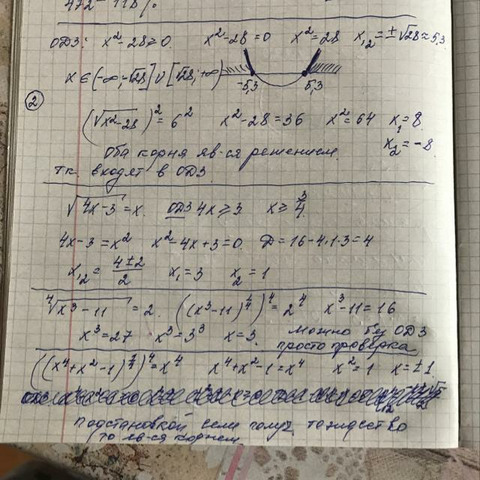 ОДЗ: x²-28≥0. x²-28=0 x²=28 x₁,₂=±√28≈5,3
x∈(-∞;-√28]∪[√28;+∞)
-5,3 5,3
②
(√x²-28)²=6² x²-28=36 x²=64 x₁=8
x₂=-8.
Оба корня яв-ся решением.
т.к. входят в ОДЗ
√4x-3=x. ОДЗ 4x≥3 x≥3/4
4x-3=x² x²-4x+3=0 D=16-4·1·3=4
x₁,₂=(4±2)/2 x₁=3 x₂=1
⁴√x³-11=2. ((x³-11)^¼)⁴=2⁴ x³-11=16
x³=27 x³=3³ x=3. Можно без ОДЗ
просто проверка
((x⁴+x²-1)^¼)⁴=x⁴ x⁴+x²-1=x⁴ x²=1 x=±1
подстановкой если получ тождество
то яв-ся корнем.